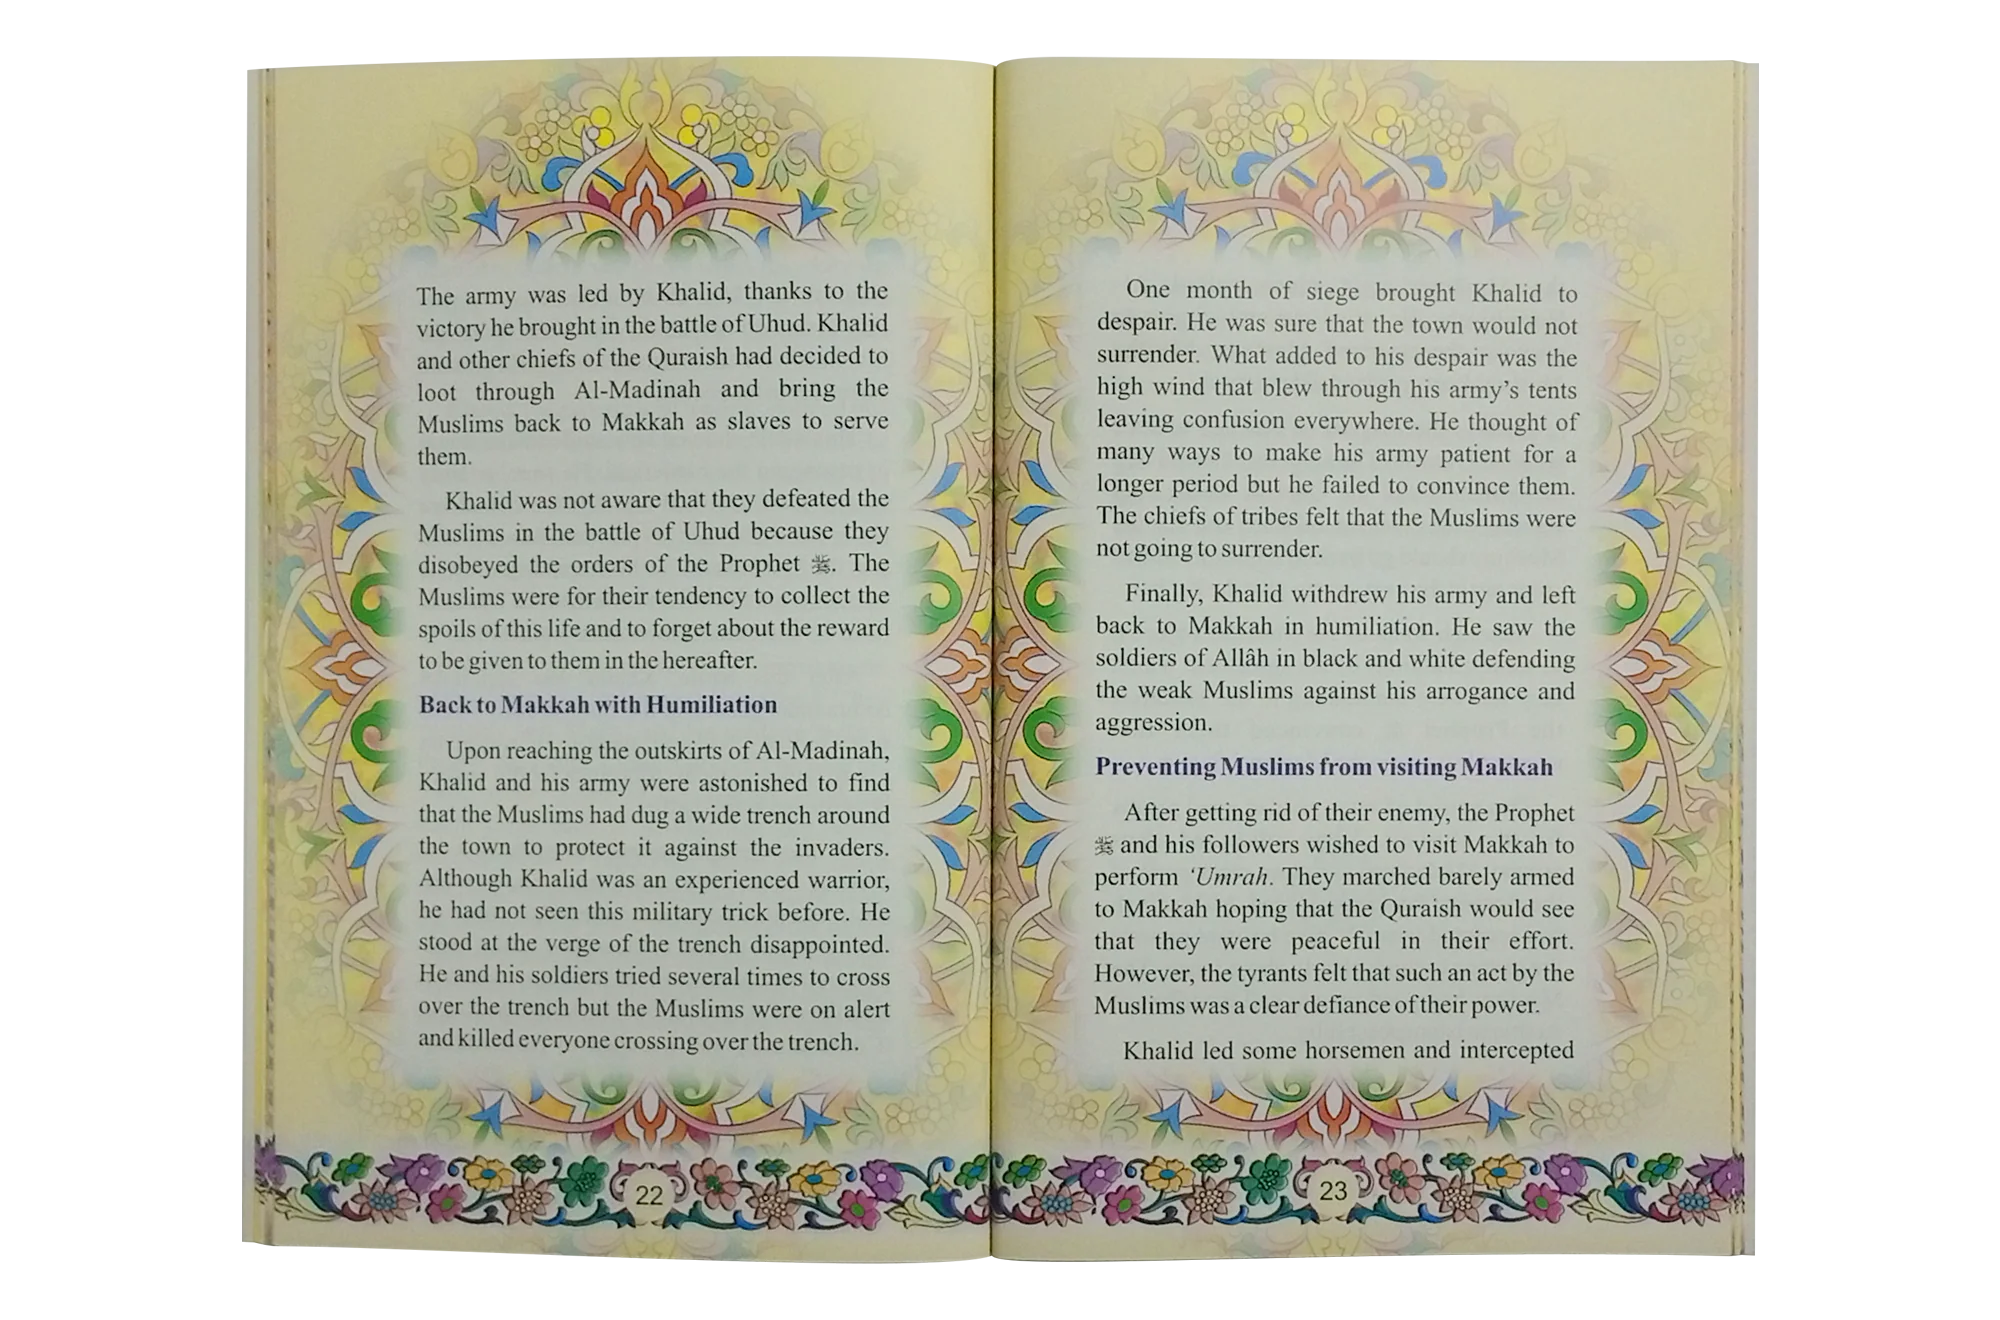 The army was led by Khalid, thanks to the
victory he brought in the battle of Uhud. Khalid
and other chiefs of the Quraish had decided to
loot through Al-Madinah and bring the
Muslims back to Makkah as slaves to serve
them.
Khalid was not aware that they defeated the
Muslims in the battle of Uhud because they
disobeyed the orders of the Prophet ﷺ. The
Muslims were for their tendency to collect the
spoils of this life and to forget about the reward
to be given to them in the hereafter.
Back to Makkah with Humiliation
Upon reaching the outskirts of Al-Madinah,
Khalid and his army were astonished to find
that the Muslims had dug a wide trench around
the town to protect it against the invaders.
Although Khalid was an experienced warrior,
he had not seen this military trick before. He
stood at the verge of the trench disappointed.
He and his soldiers tried several times to cross
over the trench but the Muslims were on alert
and killed everyone crossing over the trench.
22
One month of siege brought Khalid to
despair. He was sure that the town would not
surrender. What added to his despair was the
high wind that blew through his army's tents
leaving confusion everywhere. He thought of
many ways to make his army patient for a
longer period but he failed to convince them.
The chiefs of tribes felt that the Muslims were
not going to surrender.
Finally, Khalid withdrew his army and left
back to Makkah in humiliation. He saw the
soldiers of Allâh in black and white defending
the weak Muslims against his arrogance and
aggression.
Preventing Muslims from visiting Makkah
After getting rid of their enemy, the Prophet
ﷺ and his followers wished to visit Makkah to
perform ‘Umrah. They marched barely armed
to Makkah hoping that the Quraish would see
that they were peaceful in their effort.
However, the tyrants felt that such an act by the
Muslims was a clear defiance of their power.
Khalid led some horsemen and intercepted
23